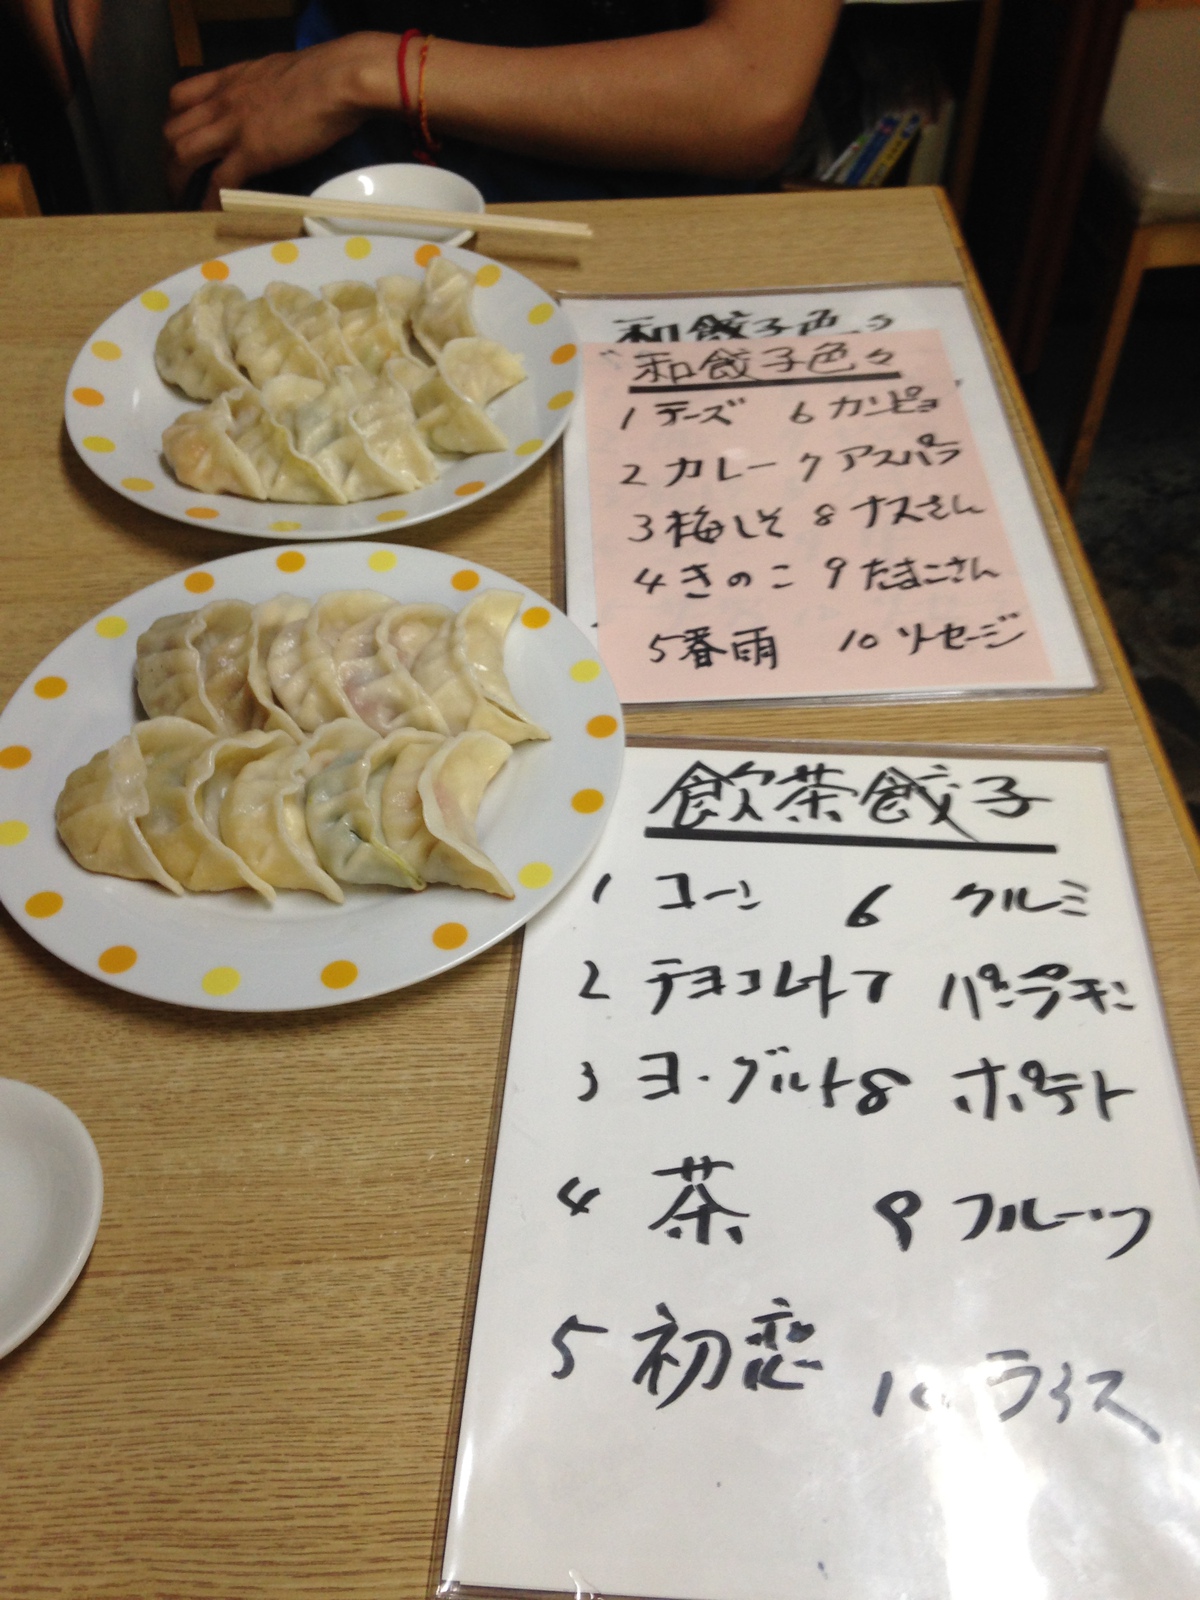 和餃子色々
和餃子色々
1 チーズ 6 カンピョ
2 カレー 7 アスパラ
3 梅しそ 8 ナスさん
4 きのこ 9 たまごさん
5 春雨 10 ソーセージ
飲茶餃子
1 コーン 6 クルミ
2 チョコレート 7 パンプキン
3 ヨーグルト 8 ポテト
4 茶 9 フルーツ
5 初恋 10 ライス